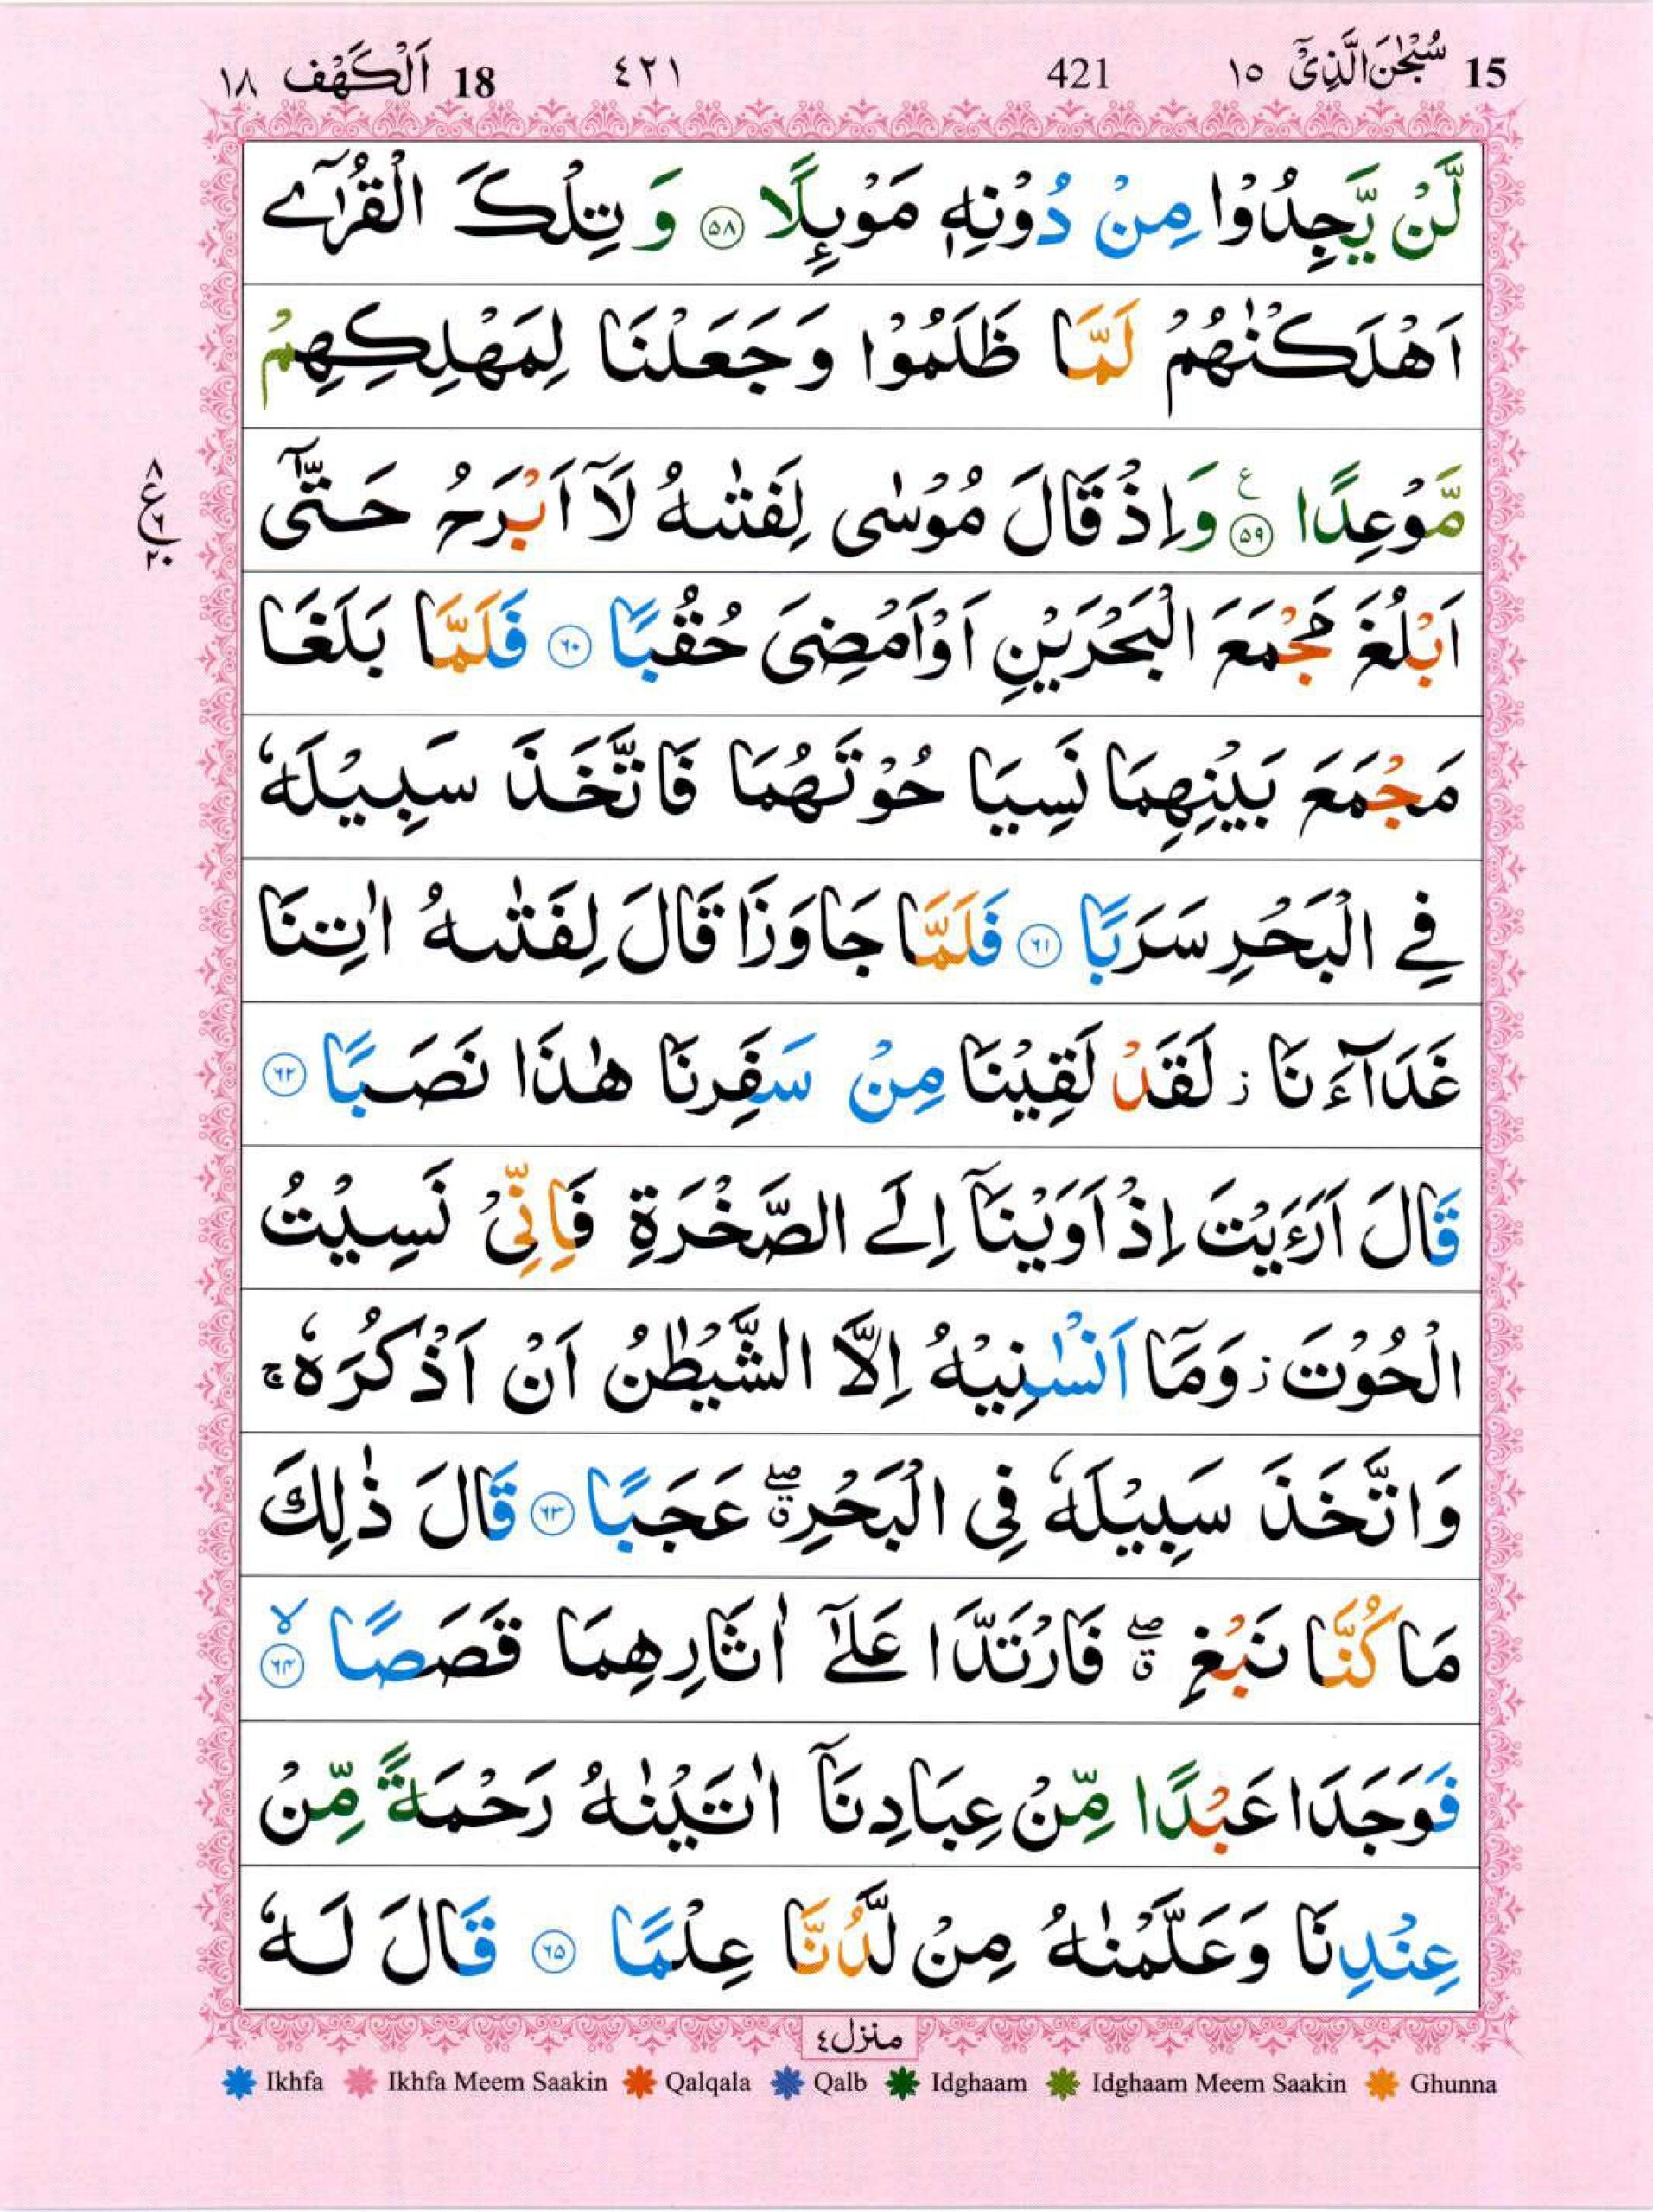 15 سُبْحٰنَ الَّذِیْۤ ١٥ 421 ٤٢١ 18 اَلْكَهْف ١٨
لَّنْ یَّجِدُوْا مِنْ دُوْنِهٖ مَوْىِٕلًا ﴿۵۸﴾ وَ تِلْكَ الْقُرٰۤى
اَهْلَكْنٰهُمْ لَمَّا ظَلَمُوْا وَ جَعَلْنَا لِمَهْلِكِهِمْ
مَّوْعِدًا ﴿۵۹﴾ ع وَ اِذْ قَالَ مُوْسٰى لِفَتٰىهُ لَاۤ اَبْرَحُ حَتّٰۤى
٨ ع ٦ ٢٠
اَبْلُغَ مَجْمَعَ الْبَحْرَیْنِ اَوْ اَمْضِیَ حُقُبًا ﴿۶۰﴾ فَلَمَّا بَلَغَا
مَجْمَعَ بَیْنِهِمَا نَسِیَا حُوْتَهُمَا فَاتَّخَذَ سَبِیْلَهٗ
فِی الْبَحْرِ سَرَبًا ﴿۶۱﴾ فَلَمَّا جَاوَزَا قَالَ لِفَتٰىهُ اٰتِنَا
غَدَآءَنَا ز لَقَدْ لَقِیْنَا مِنْ سَفَرِنَا هٰذَا نَصَبًا ﴿۶۲﴾
قَالَ اَرَءَیْتَ اِذْ اَوَیْنَاۤ اِلَى الصَّخْرَةِ فَاِنِّیْ نَسِیْتُ
الْحُوْتَ ز وَ مَاۤ اَنْسٰىنِیْهُ اِلَّا الشَّیْطٰنُ اَنْ اَذْكُرَهٗ ج
وَ اتَّخَذَ سَبِیْلَهٗ فِی الْبَحْرِ ۖۗ عَجَبًا ﴿۶۳﴾ قَالَ ذٰلِكَ
مَا كُنَّا نَبْغِ ۖۗ فَارْتَدَّا عَلٰۤى اٰثَارِهِمَا قَصَصًا ﴿۶۴﴾ لا
فَوَجَدَا عَبْدًا مِّنْ عِبَادِنَاۤ اٰتَیْنٰهُ رَحْمَةً مِّنْ
عِنْدِنَا وَ عَلَّمْنٰهُ مِنْ لَّدُنَّا عِلْمًا ﴿۶۵﴾ قَالَ لَهٗ
منزل ٤
Ikhfa Ikhfa Meem Saakin Qalqala Qalb Idghaam Idghaam Meem Saakin Ghunna